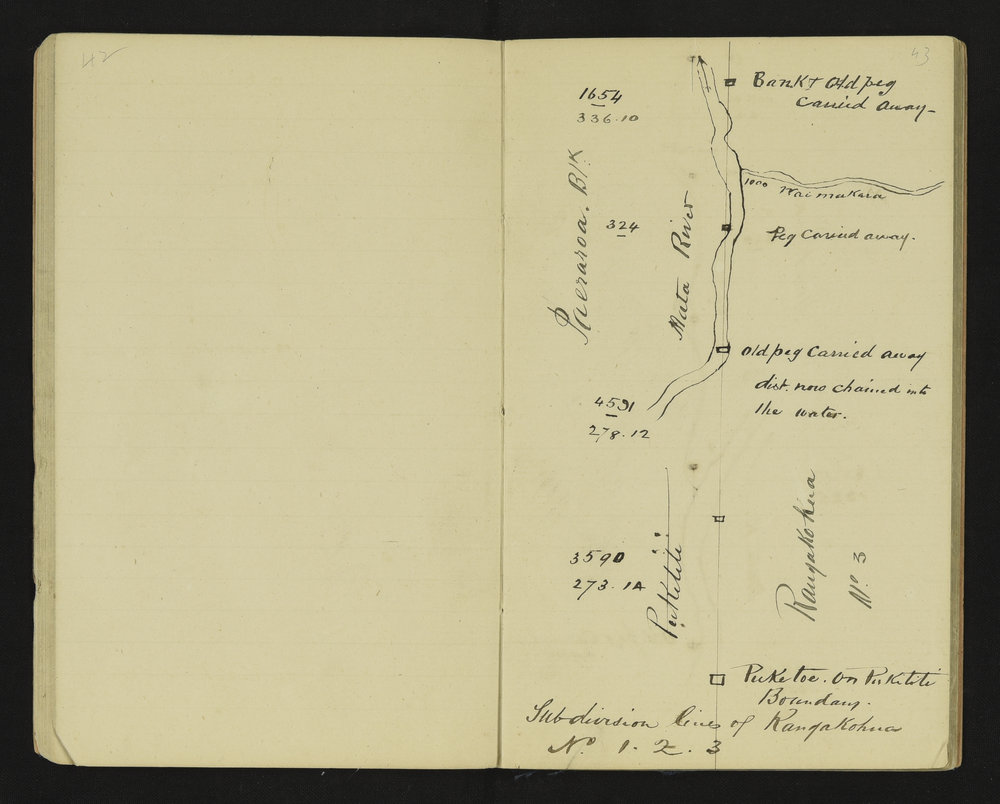 42
43
Bank & Old peg
carried away -
1654
336.10
1000 Waimakara
Paeraroa. Blk.
324
Mata River
Peg carried away.
Old peg carried away
dist. now chained into
the water.
4591
278.12
Rangakohua
No. 3
3590
273.1A
Puketiti
Puketoe. On Puketiti
Boundary.
Subdivision lines of Rangakohua
No 1. 2. 3